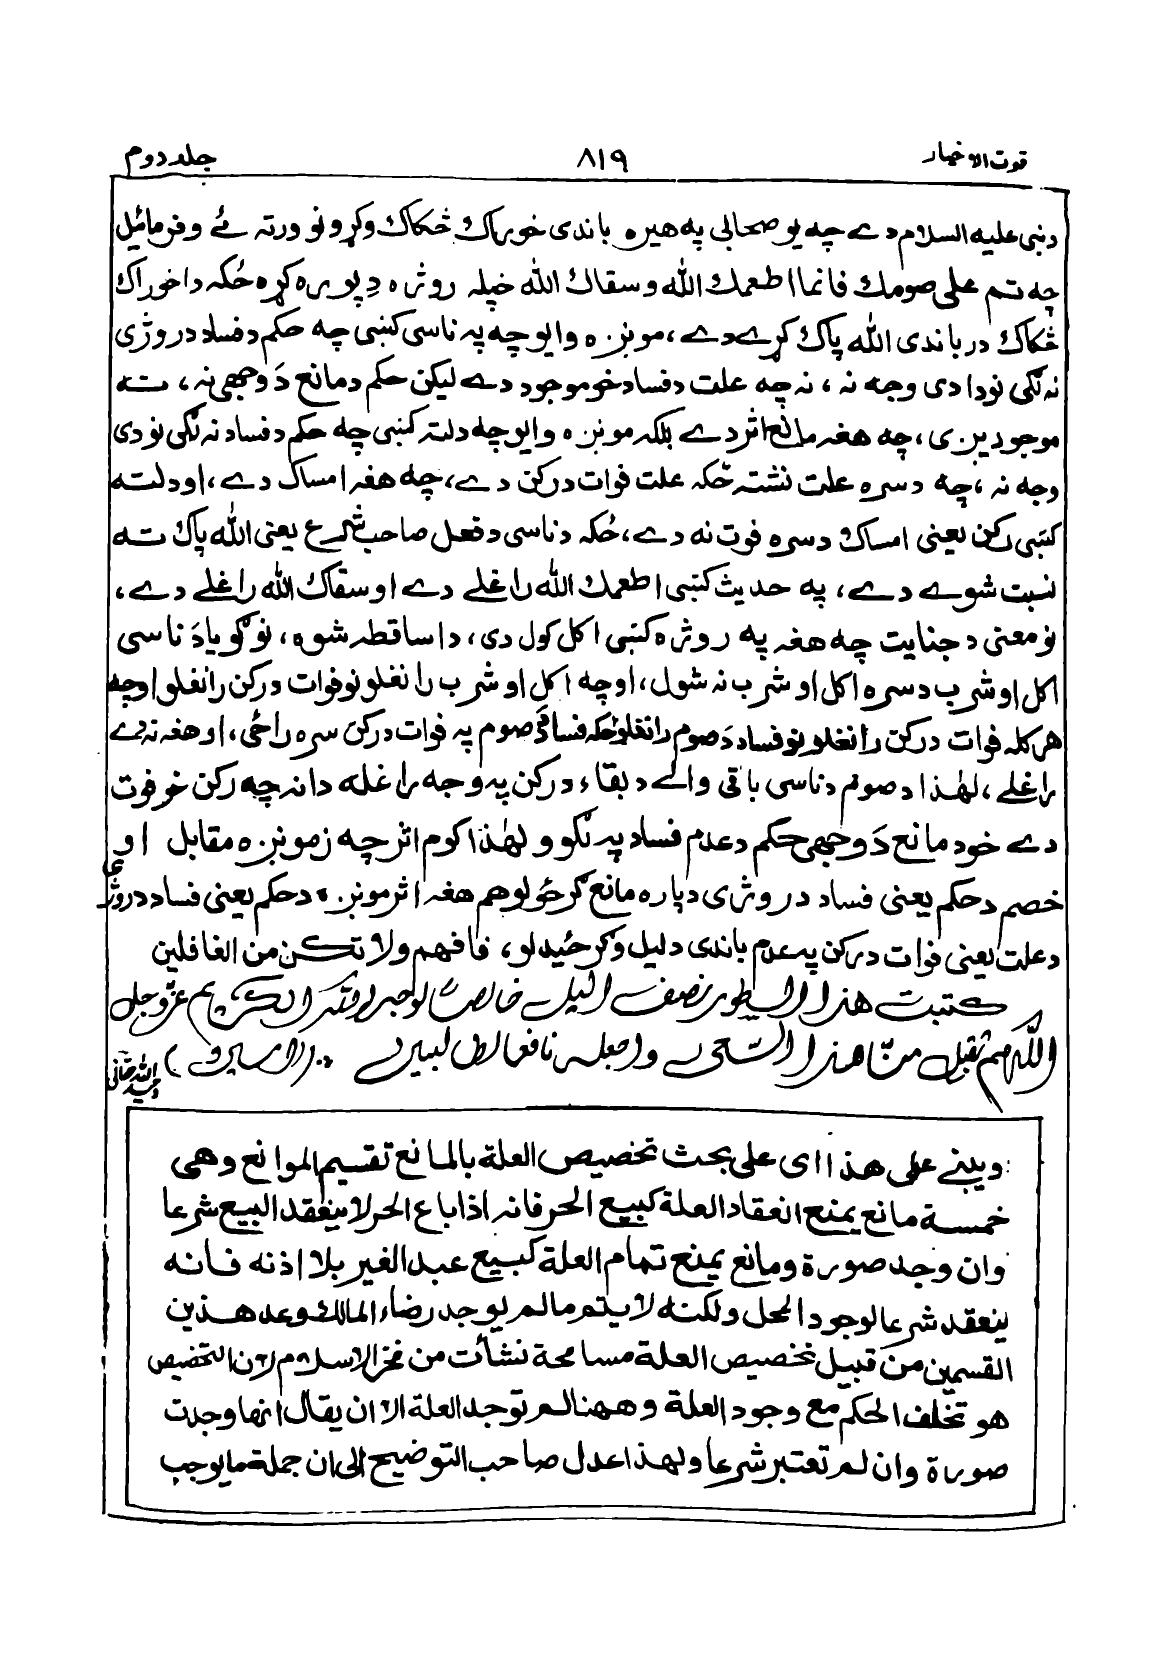 قوت الاخمار ۸۱۹ جلد دوم
دنبی علیه السلام دے چه یو صحابی په هیره باندی خوراک څکاک وکړو نو ورته ئے وفرمائیل
چه تم علی صومک فانما اطعمک الله وسقاک الله خپله روژه دِ پوره کړه ځکه دا خوراک
څکاک در باندی الله پاک کړے دے، مونږه وایو چه په ناسی کښی چه حکم د فساد د روژی
نه لگی نو دا دی وجه نه، نه چه علت د فساد خو موجود دے لیکن حکم د مانع دَ وجهی نه، ته
موجودیږی، چه هغه مانع اثر دے بلکه مونږه وایو چه دلته کښی چه حکم د فساد نه لگی نو دی
وجه نه، چه دسره علت نشته ځکه علت فوات د رکن دے، چه هغه امساک دے، او دلته
کښی رکن یعنی امساک دسره فوت نه دے، ځکه د ناسی د فعل صاحب شرع یعنی الله پاک ته
نسبت شوے دے، په حدیث کښی اطعمک الله راغلے دے او سقاک الله راغلے دے،
نو معنی د جنایت چه هغه په روژه کښی اکل کول دی، دا ساقطه شوه، نو گویا دَ ناسی
اکل او شرب دسره اکل او شرب نه شول، او چه اکل او شرب را نغلو نو فوات د رکن را نغلو او چه
هر کله فوات د رکن را نغلو نو فساد دَ صوم را نغلو ځکه فساد دَ صوم په فوات د رکن سره راځی، او هغه نه دے
راغلے، لهٰذا د صوم د ناسی باقی والے د بقاء د رکن په وجه راغله دا نه چه رکن خو فوت
دے خو د مانع دَ وجهی حکم د عدم فساد په لگو و لهٰذا کوم اثر چه زمونږه مقابل او
خصم د حکم یعنی فساد د روژی دپاره مانع گرځولو هم هغه اثر مونږه د حکم یعنی فساد د روژی
د علت یعنی فوات د رکن په عدم باندی دلیل وګرځیدلو، فافهم ولا تکن من الغافلین
کتبت هذا السطور نصف اللیل خالصا لوجه الکریم عز وجل
اللهم تقبل منا هذا السعی واجعله نافعا للطالبین
:ویبنے علی هذا ای علی بحث تخصیص العلة بالمانع تقسیم الموانع وهی
خمسة مانع یمنع انعقاد العلة کبیع الحر فانه اذا باع الحر لا ینعقد البیع شرعا
وان وجد صورة ومانع یمنع تمام العلة کبیع عبد الغیر بلا اذنه فانه
ینعقد شرعا لوجود المحل ولکنه لا یتم مالم یوجد رضاء المالک وعد هذین
القسمین من قبیل تخصیص العلة مسامحة نشأت من فخر الاسلام لان التخصیص
هو تخلف الحکم مع وجود العلة وههنا لم توجد العلة الا ان یقال انها وجدت
صورة وان لم تعتبر شرعا ولهذا عدل صاحب التوضیح الی ان جملة ما یوجب